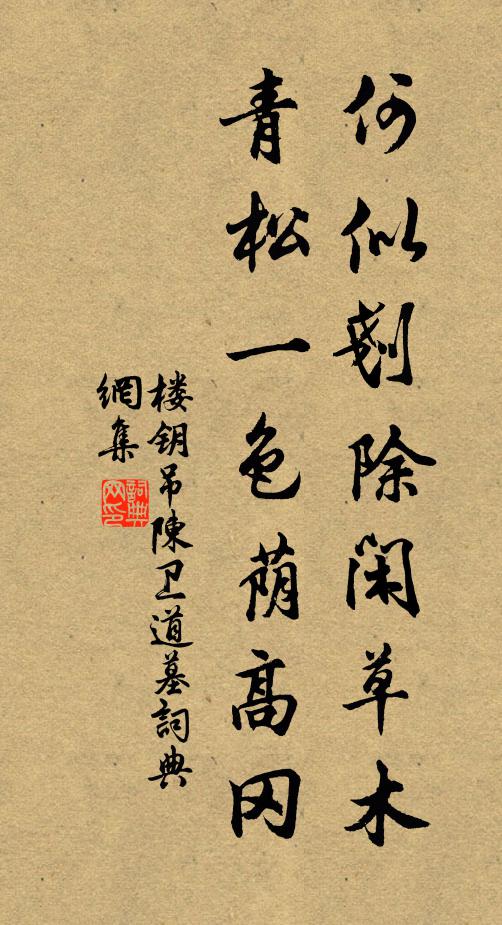 何似剗除閑草木
青松一色荫高冈
楼钥吊陳卫道墓詞典
網集
詞典
网印